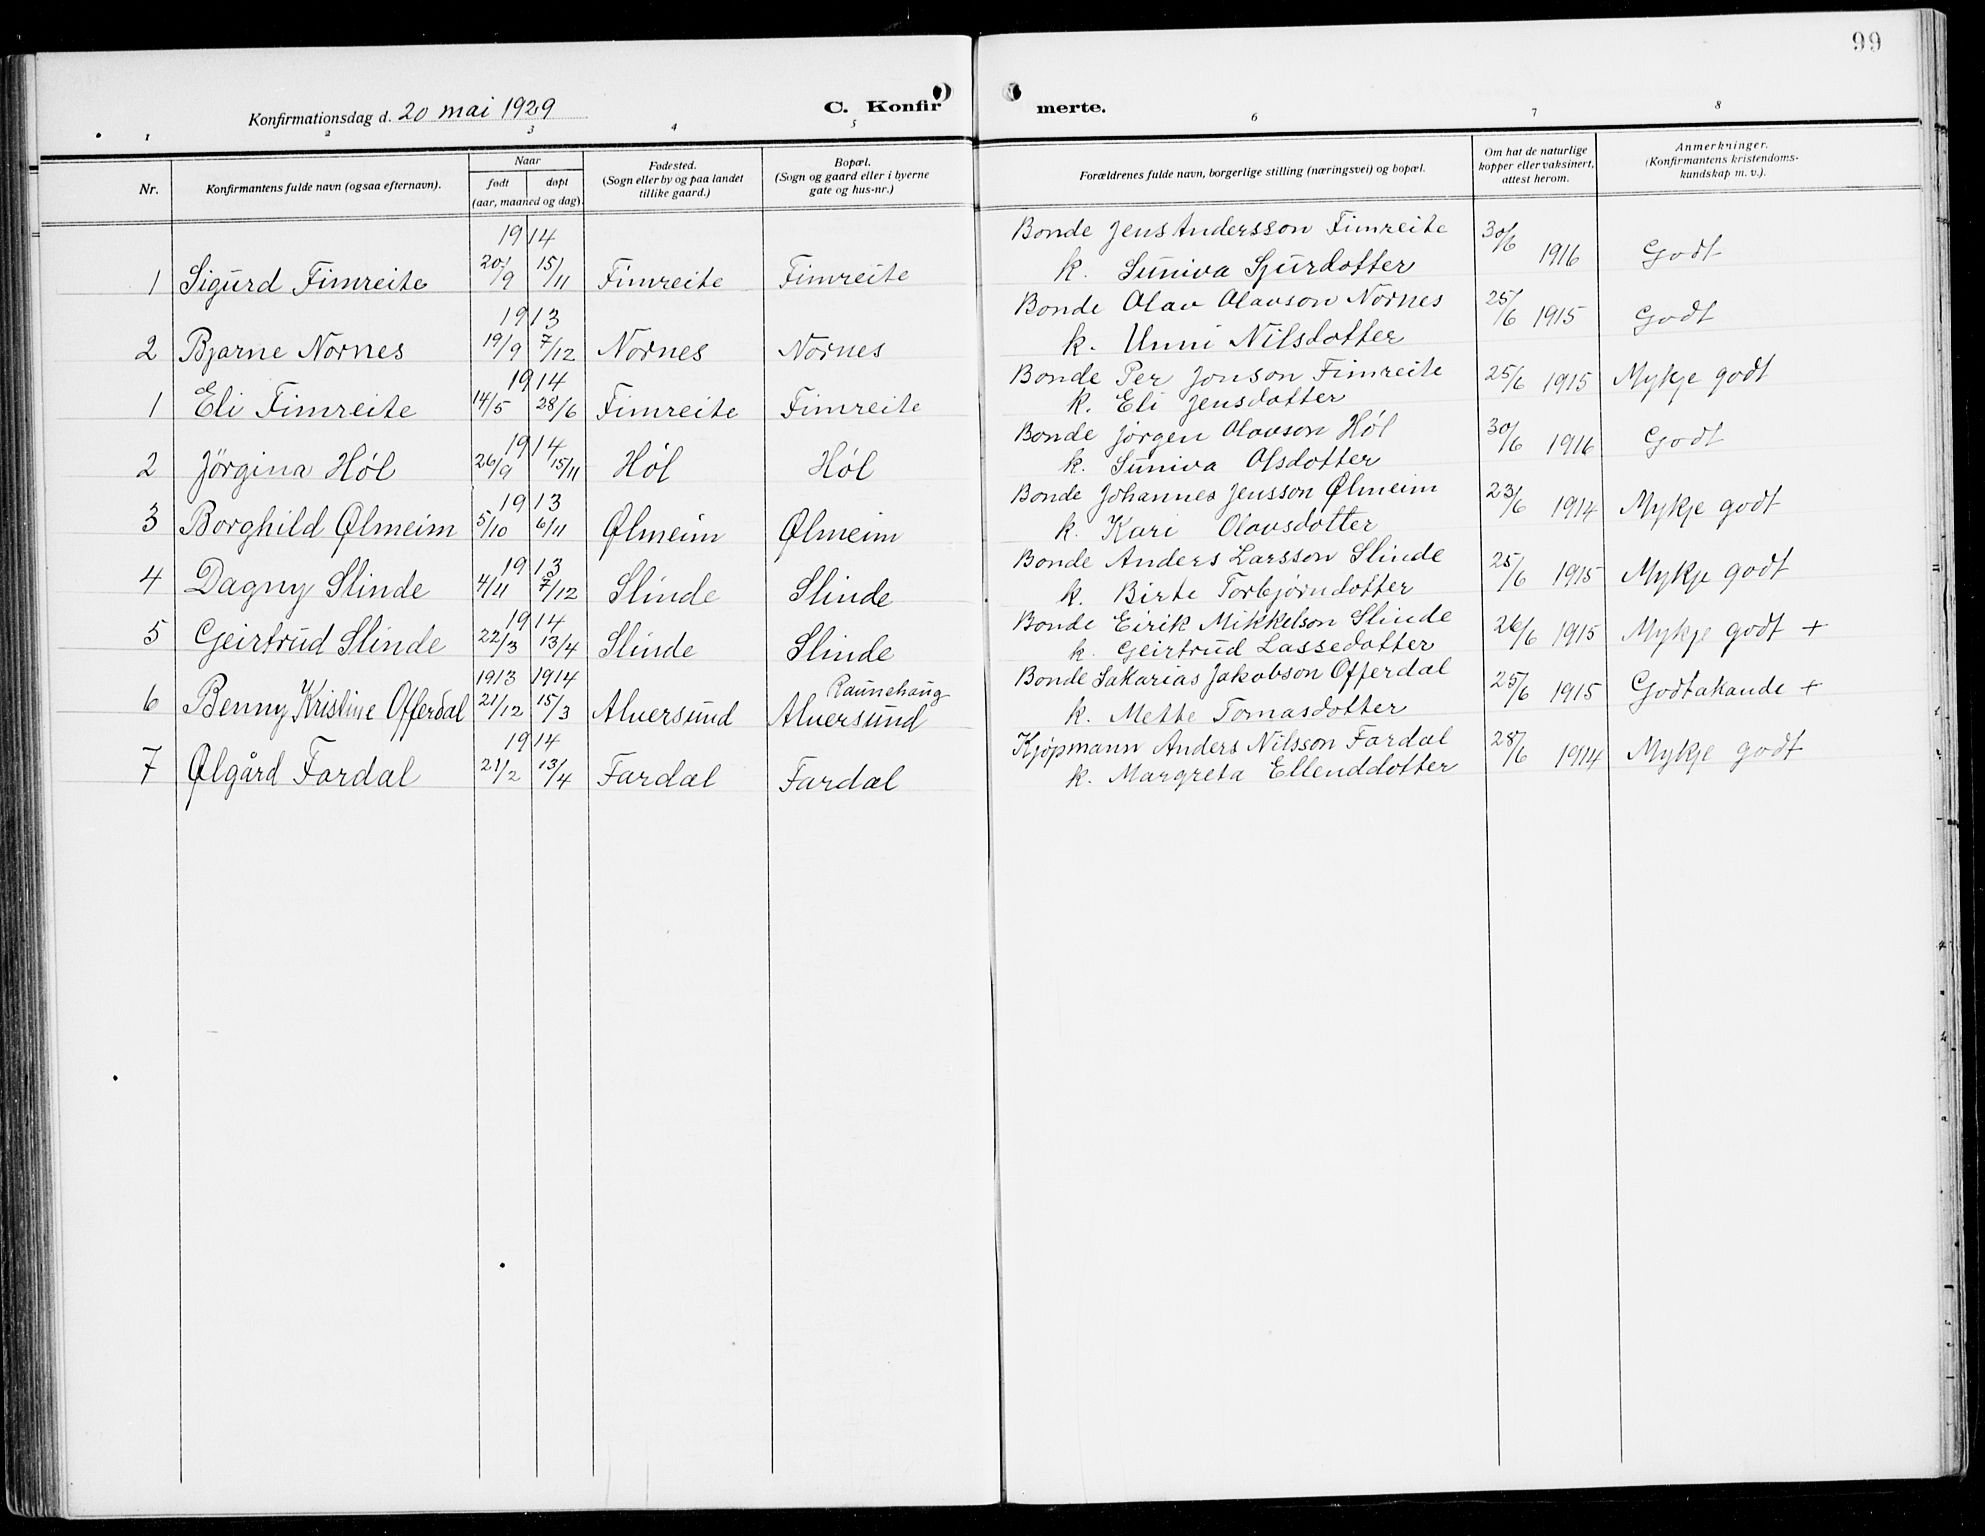 99
Konfirmationsdag d. 20 mai 1929
C. Konfirmerte.
1 2 3 4 5 6 7 8
Nr.
Konfirmantens fulde navn (ogsaa efternavn).
Naar
født
døpt
(aar, maaned og dag).
Fødested.
(Sogn eller by og paa landet
tillike gaard.)
Bopæl.
(Sogn og gaard eller i byerne
gate og hus-nr.)
Forældrenes fulde navn, borgerlige stilling (næringsvei) og bopæl.
Om hat de naturlige
kopper eller vaksinert,
attest herom.
Anmerkninger.
(Konfirmantens kristendoms-
kundskap m. v.).
1914 Bonde Jens Andersson Fimreite
1 Sigurd Fimreite 20/9 15/11 Fimreite Fimreite k. Suniva Sjurdotter 30/6 1916 Godt
1913 Bonde Olav Olavson Nornes
2 Bjarne Nornes 19/9 7/12 Nornes Nornes k. Unni Nilsdotter 25/6 1915 Godt
1914 Bonde Per Jonson Fimreite
1 Eli Fimreite 14/5 28/6 Fimreite Fimreite k. Eli Jensdotter 25/6 1915 Mykje godt
1914 Bonde Jørgen Olavson Høl
2 Jörgina Høl 26/9 15/11 Høl Høl k. Suniva Olsdotter 30/6 1916 Godt
1913 Bonde Johannes Jensson Ølmeim
3 Borghild Ølmeim 5/10 6/11 Ølmeim Ølmeim k. Kari Olavsdotter 23/6 1914 Mykje godt
1913 Bonde Anders Larsson Slinde
4 Dagny Slinde 4/11 7/12 Slinde Slinde k. Birte Torbjørndotter 25/6 1915 Mykje godt
1914 Bonde Eirik Mikkelson Slinde
5 Geirtrud Slinde 22/3 13/4 Slinde Slinde k. Geirtrud Lassedotter 26/6 1915 Mykje godt +
1913 1914 Raunehaug Bonde Sakarias Jakobson Offerdal
6 Benny Kristine Offerdal 21/12 15/3 Alversund Alversund k. Mette Tomasdotter 25/6 1915 Godtakande +
1914 Kjøpmann Anders Nilsson Fardal
7 Ølgård Fardal 21/2 13/4 Fardal Fardal k. Margreta Ellenddotter 28/6 1914 Mykje godt